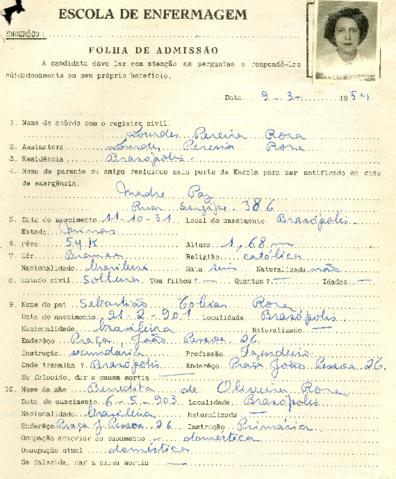 ESCOLA DE ENFERMAGEM
ENDERÊÇO:
FOLHA DE ADMISSÃO
A candidata deve ler com atenção as perguntas e respondê-las
cuidadosamente em seu próprio benefício.
Data 9-3- 1954
1. Nome de acôrdo com o registro civil
Lourdes Pereira Rosa
2. Assinatura Lourdes Pereira Rosa
3. Residência Brasópolis
4. Nome do parente ou amigo residindo mais perto da Escola para ser notificado em caso
de emergência.
Madre Paz
Rua Sergipe 386
5. Data do nascimento 11-10-31 Local do nascimento Brasópolis
Estado Minas
6. Pêso 54 K Altura 1,68 m
7. Côr Branca Religião católica
Nacionalidade brasileira Nata sim Naturalizada não
8. Estado civil Solteira Tem filhos? — Quantos? — Idades —
9. Nome do pai Sebastião Tobias Rosa
Data do nascimento 21-2-901 Localidade Brasópolis
Nacionalidade brasileira Naturalizado —
Enderêço Praça João Pessoa 26
Instrução secundária Profissão Fazendeiro
Onde trabalha? Brasópolis Enderêço Praça João Pessoa 26.
Se falecido, dar a causa mortis —
10. Nome da mãe Benedita de Oliveira Rosa
Data do nascimento 6-5-903 Localidade Brasópolis
Nacionalidade brasileira Naturalizada —
Enderêço Praça J. Pessoa 26 Instrução Primária
Ocupação anterior ao casamento doméstica
Ocupação atual doméstica
Se falecida, dar a causa mortis —